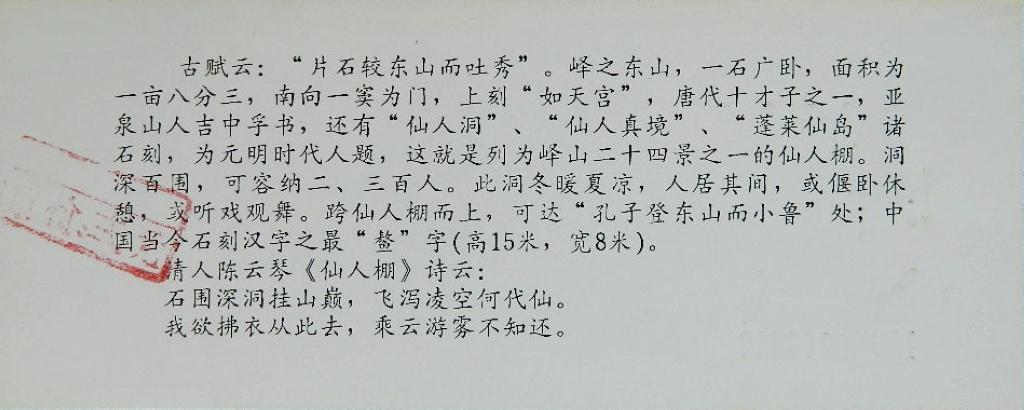 古赋云：“片石较东山而吐秀”。峄之东山，一石广卧，面积为
一亩八分三，南向一窦为门，上刻“如天宫”，唐代十才子之一，亚
泉山人吉中孚书，还有“仙人洞”、“仙人真境”、“蓬莱仙岛”诸
石刻，为元明时代人题，这就是列为峄山二十四景之一的仙人棚。洞
深百围，可容纳二、三百人。此洞冬暖夏凉，人居其间，或偃卧休
憩，或听戏观舞。跨仙人棚而上，可达“孔子登东山而小鲁”处；中
国当今石刻汉字之最“鳌”字(高15米，宽8米)。
清人陈云琴《仙人棚》诗云：
石围深洞挂山巅，飞泻凌空何代仙。
我欲拂衣从此去，乘云游雾不知还。